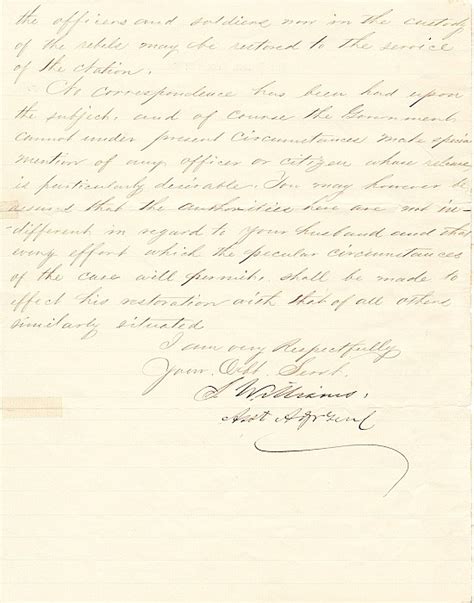 the officers and soldiers now in the custody
of the rebels may be restored to the service
of the Nation.
The correspondence has been had upon
the subject, and of course the Government
cannot under present circumstances make special
mention of any officer or citizen whose release
is particularly desirable. You may however be
assured that the authorities here are not in-
different in regard to your husband and that
every effort which the pecular circumstances
of the case will permit, shall be made to
effect his restoration with that of all others
similarly situated
I am very Respectfully
Your Obt. Servt.
S Williams,
Asst A Genl